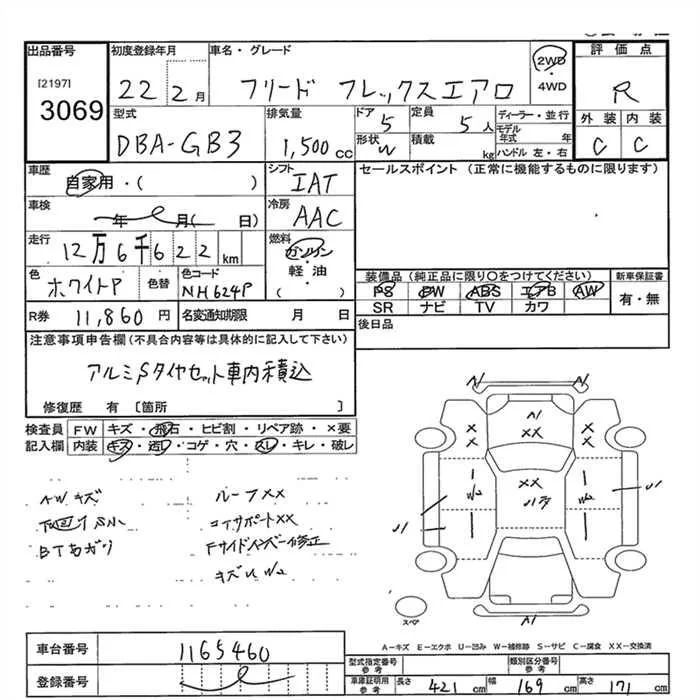 出品番号 初度登録年月 車名・グレード 2WD・4WD 評価点
[2197] 3069 22 2月 フリード フレックスエアロ R
型式 排気量 ドア 定員 ディーラー・並行 外装 内装
DBA-GB3 1,500cc 5 5人 モデル年式 年 C C
形状 W 積載 kg ハンドル 左・右
車歴 自家用・( ) シフト IAT セールスポイント (正常に機能するものに限ります)
車検 年 月( 日) 冷房 AAC
走行 12万6千622km 燃料 ガソリン・軽油・( )
色 ホワイトP 色替 色コード NH624P
装備品 (純正品に限り○をつけてください) 新車保証書
PS PW ABS エアB AW 有・無
SR ナビ TV カワ
R券 11,860円 名変通知期限 月 日 後日品
注意事項申告欄(不具合内容等は具体的に記入して下さい)
アルミSタイヤセット車内積込
修復歴 有 [箇所 ]
検査員 FW キズ・飛石・ヒビ割・リペア跡・×要
記入欄 内装 キズ・汚レ・コゲ・穴・スレ・キレ・破レ
AWキズ ルーフXX
コアサポートXX
Fサイドメンバー修正
キズU W2
A1 A1
A1
XX XX XX
XX
W2 W2
U1 U1
U1
A1 A1
スペア
A-キズ E-エクボ U-凹み W-補修跡 S-サビ C-腐食 XX-交換済
車台番号 1165460
登録番号
型式指定番号 参考 類別区分番号 参考
車庫証明用 参考 長さ 421cm 幅 169cm 高さ 171cm